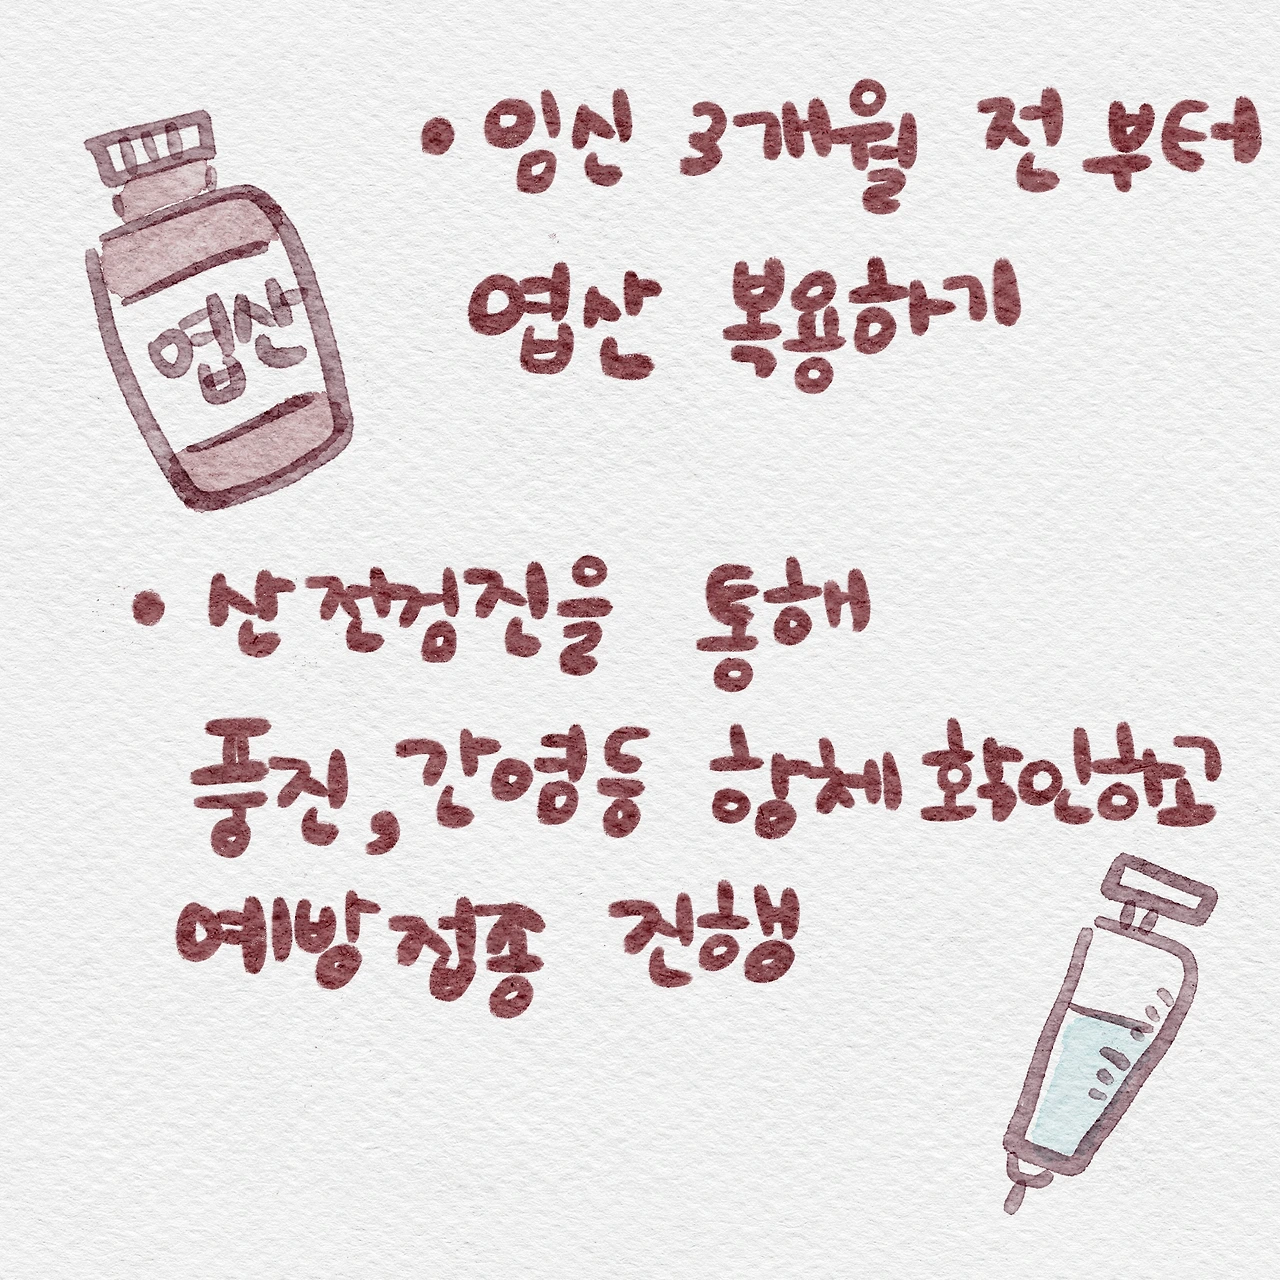 • 임신 3개월 전부터
엽산 복용하기
엽산
• 산전검진을 통해
풍진, 간염등 항체확인하고
예방접종 진행